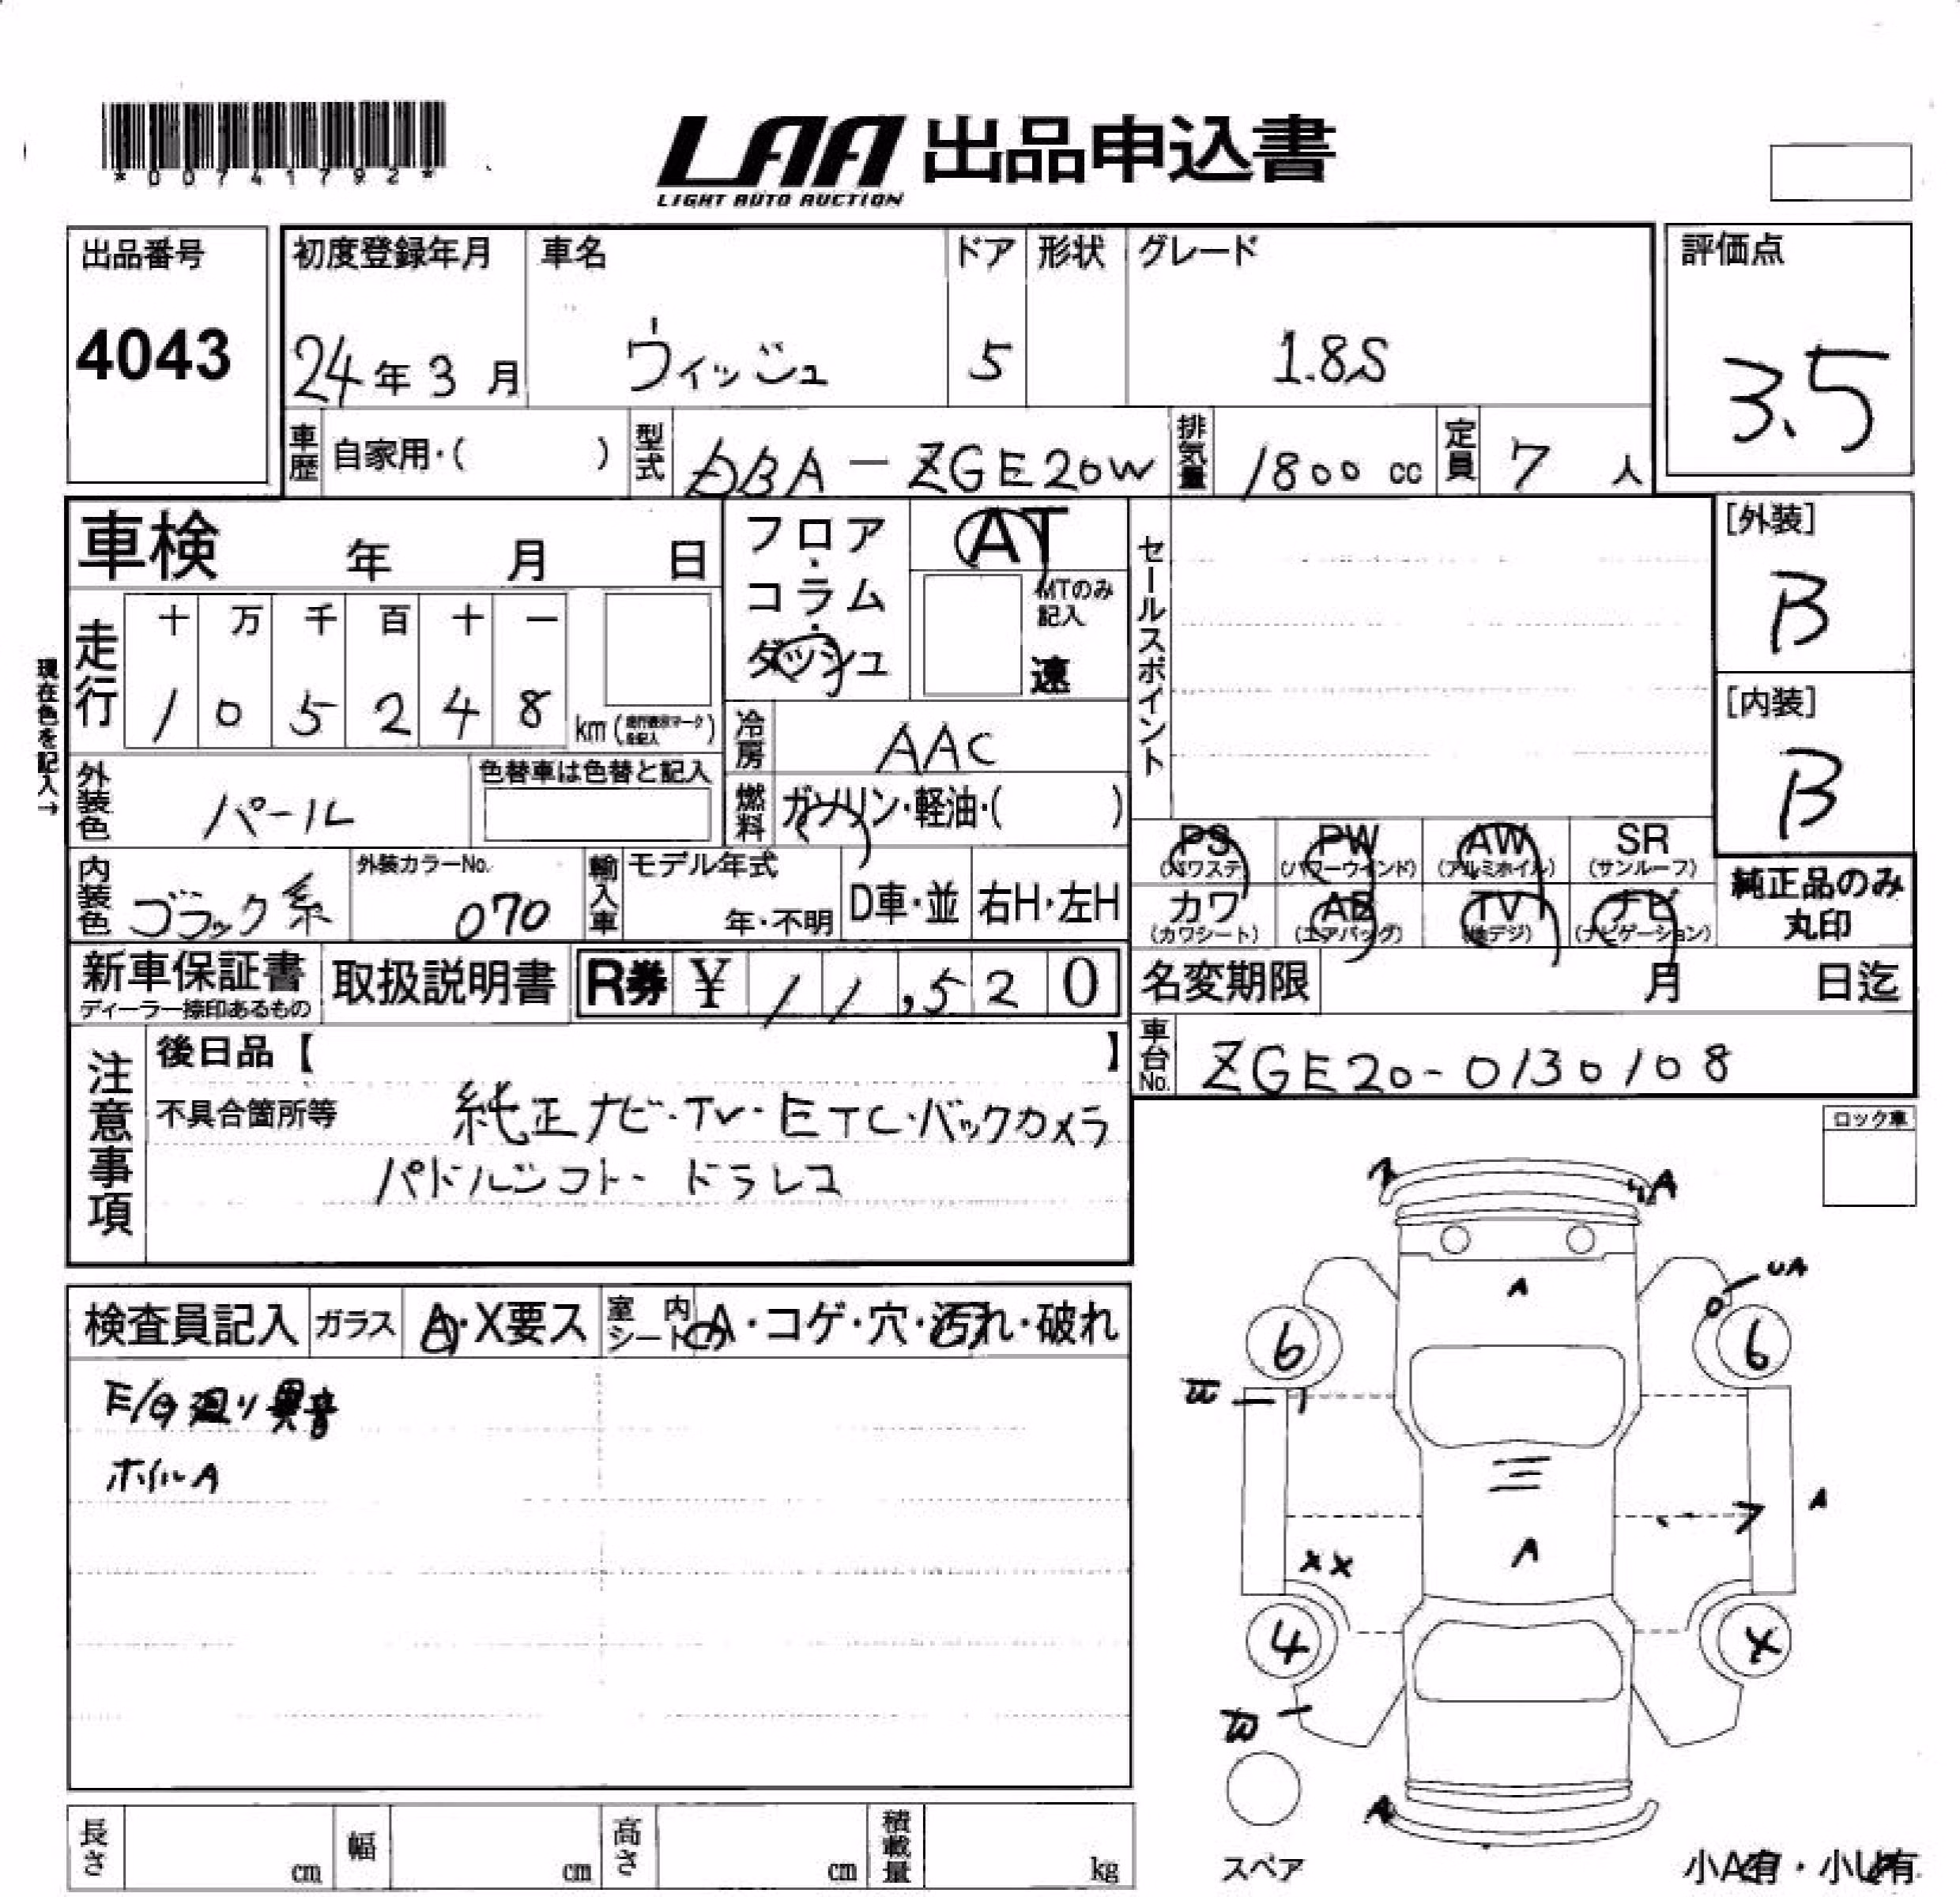 *00741792*
LAA 出品申込書
LIGHT AUTO AUCTION
出品番号
4043
初度登録年月
24年3月
車名
ウィッシュ
ドア
5
形状
グレード
1.8S
評価点
3.5
車歴 自家用・( )
型式 DBA-ZGE20W
排気量 1800 cc
定員 7 人
車検 年 月 日
フロア・コラム・ダッシュ
AT
MTのみ記入
速
セールスポイント
[外装]
B
[内装]
B
現在色を記入→
走行
十 万 千 百 十 一
1 0 5 2 4 8
km
冷房 AAC
外装色 パール
色替車は色替と記入
燃料 ガソリン・軽油・( )
PS
(パワステ)
PW
(パワーウインド)
AW
(アルミホイル)
SR
(サンルーフ)
純正品のみ
丸印
内装色 ブラック系
外装カラーNo.
070
輸入車
モデル年式
年・不明
D車・並
右H・左H
カワ
(カワシート)
AB
(エアバッグ)
TV
(地デジ)
ナビ
(ナビゲーション)
新車保証書
ディーラー捺印あるもの
取扱説明書
R券 ¥ 11,520
名変期限 月 日迄
車台No. ZGE20-0130108
注意事項
後日品【 】
不具合箇所等 純正ナビ・TV・ETC・バックカメラ
パドルシフト・ドラレコ
ロック車
A
A
UA
6
6
A
A
XX
4
X
A
スペア
小A有・小U有
検査員記入
ガラス A・X要ス
室内シート A・コゲ・穴・汚れ・破れ
E/G廻り異音
ホイルA
長さ cm
幅 cm
高さ cm
積載量 kg